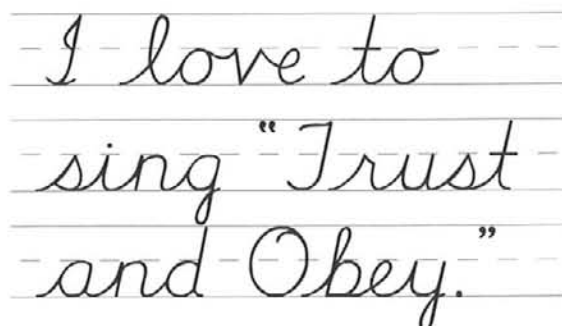 I love to
sing “Trust
and Obey.”